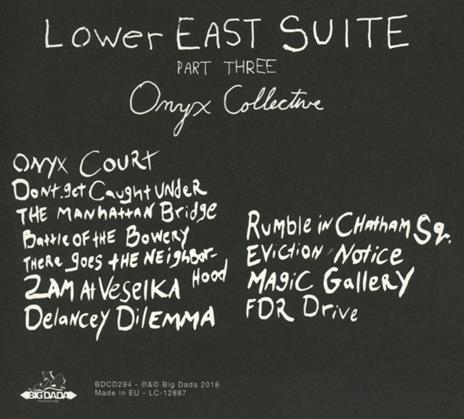 Lower EAST SUITE
PART THREE
Onyx Collective
ONYX COURT
Dont get Caught UNDER
THE MANHATTAN Bridge
Battle OF THE BOWERY
THERE goes tHE NEIGHBOR-
HOOD
2AM At VeseLKA
Delancey DILEMMA
Rumble in CHatHam Sq.
EVICTION Notice
MAGIC Gallery
FDR Drive
BIG DADA
BDCD294 - ℗&© Big Dada 2018
Made in EU - LC-12887